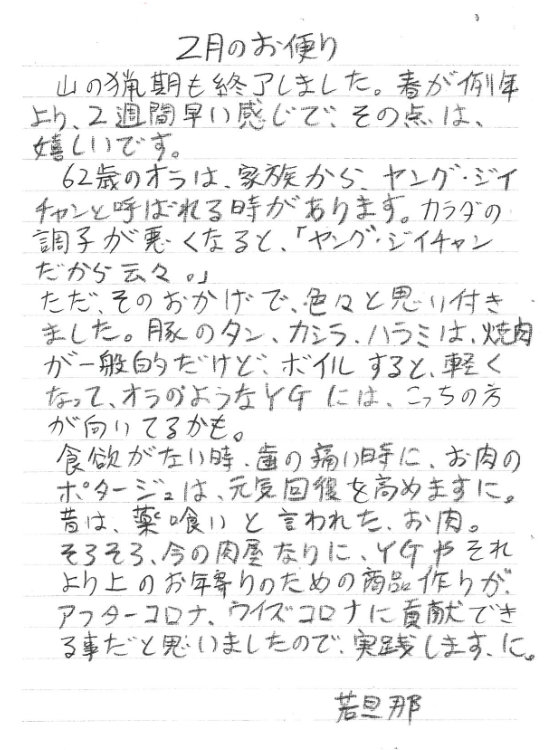 2月のお便り
山の猟期も終了しました。春が例年
より、2週間早い感じで、その点は、
嬉しいです。
62歳のオラは、家族から、ヤング・ジイ
チャンと呼ばれる時があります。カラダの
調子が悪くなると、「ヤング・ジイチャン
だから云々。」
ただ、そのおかげで、色々と思い付き
ました。豚のタン、カシラ、ハラミは、焼肉
が一般的だけど、ボイルすると、軽く
なって、オラのようなYGには、こっちの方
が向いてるかも。
食欲がない時、歯の痛い時に、お肉の
ポタージュは、元気回復を高めますに。
昔は、薬喰いと言われた、お肉。
そろそろ、今の肉屋なりに、YGやそれ
より上のお年寄りのための商品作りが、
アフターコロナ、ウイズコロナに貢献でき
る事だと思いましたので、実践します、に。
若旦那